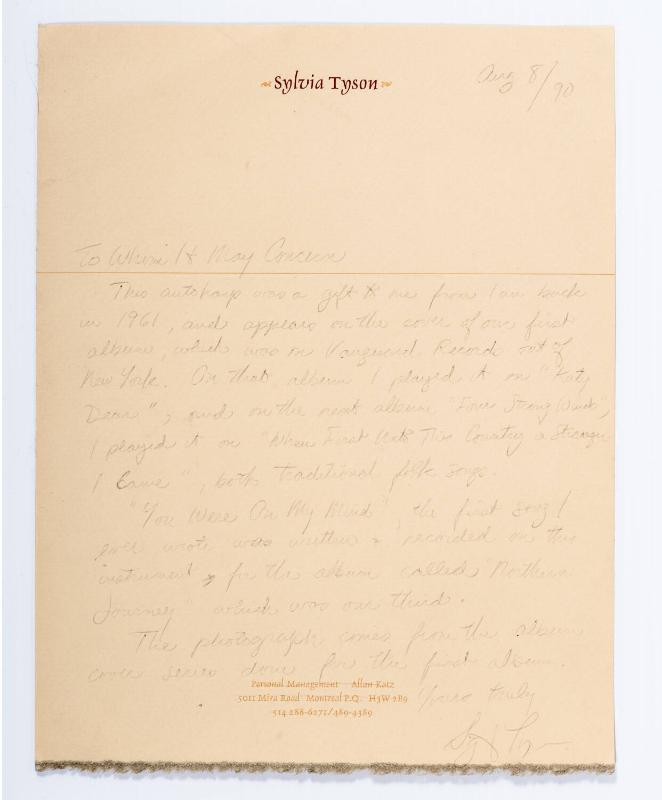 Sylvia Tyson
Aug 8/90
To Whom It May Concern
This autoharp was a gift to me from Ian back
in 1961, and appears on the cover of our first
album, which was on Vanguard Records out of
New York. On that album I played it on "Katy
Dear", and on the next album "Four Strong Winds",
I played it on "When First Unto This Country a Stranger
I Came", both traditional folk songs.
"You Were On My Mind" the first song I
ever wrote was written & recorded on this
instrument for the album called "Northern
Journey" which was our third.
The photograph comes from the album
cover series done for the first album.
Personal Management Allan Katz
5011 Mira Road Montreal P.Q. H3W 2B9
514 288-6271/489-4389
Yours truly